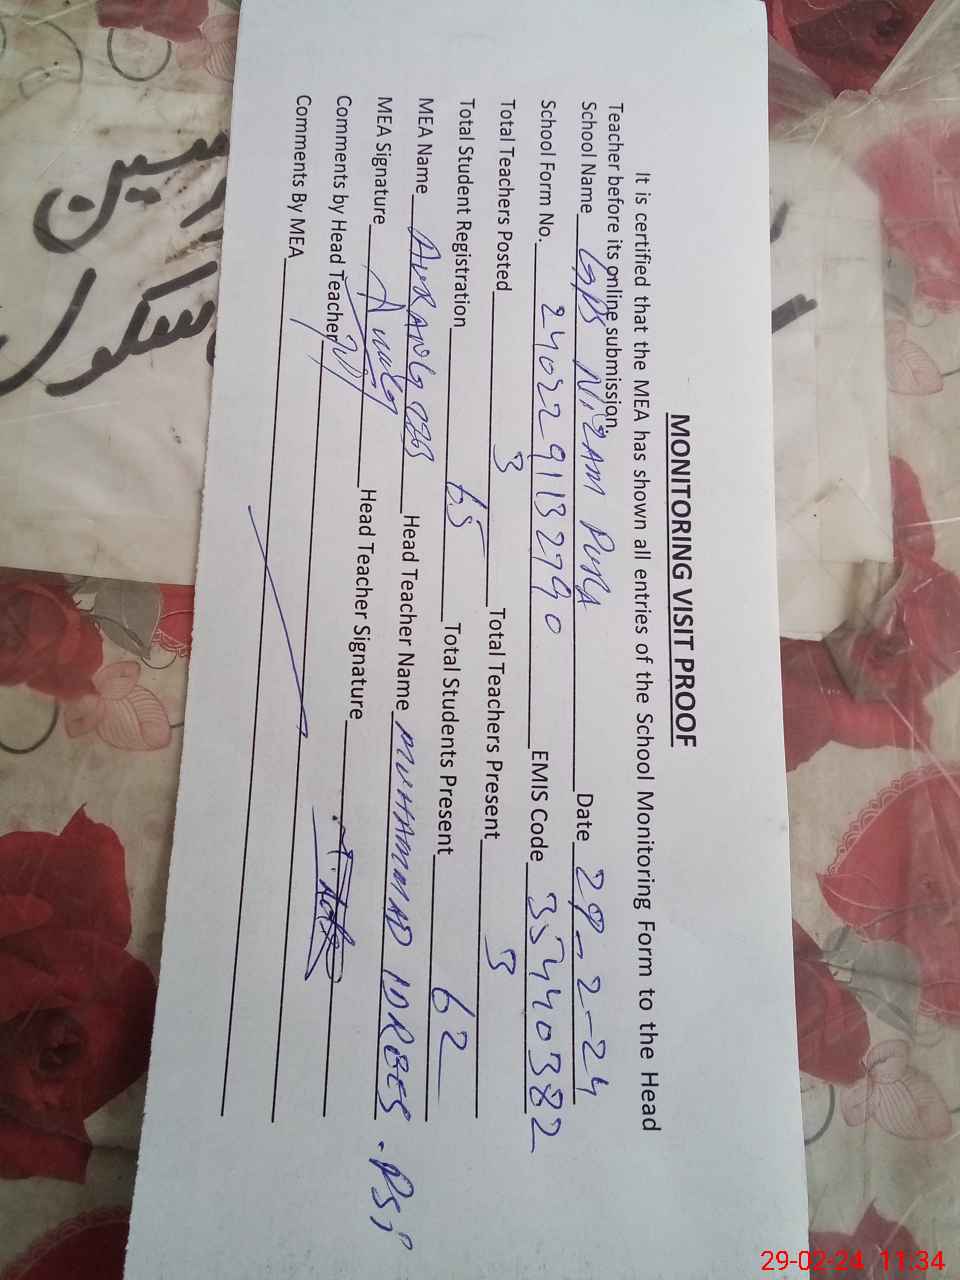 MONITORING VISIT PROOF
It is certified that the MEA has shown all entries of the School Monitoring Form to the Head
Teacher before its online submission.
School Name GPS NIZAM PURA Date 29-2-24
School Form No. 2402291132790 EMIS Code 35440382
Total Teachers Posted 3 Total Teachers Present 3
Total Student Registration 65 Total Students Present 62
MEA Name AURANGZEB Head Teacher Name MUHAMMAD IDREES. PST
MEA Signature Head Teacher Signature
Comments by Head Teacher
Comments By MEA
سکول
29-02-24 11:34